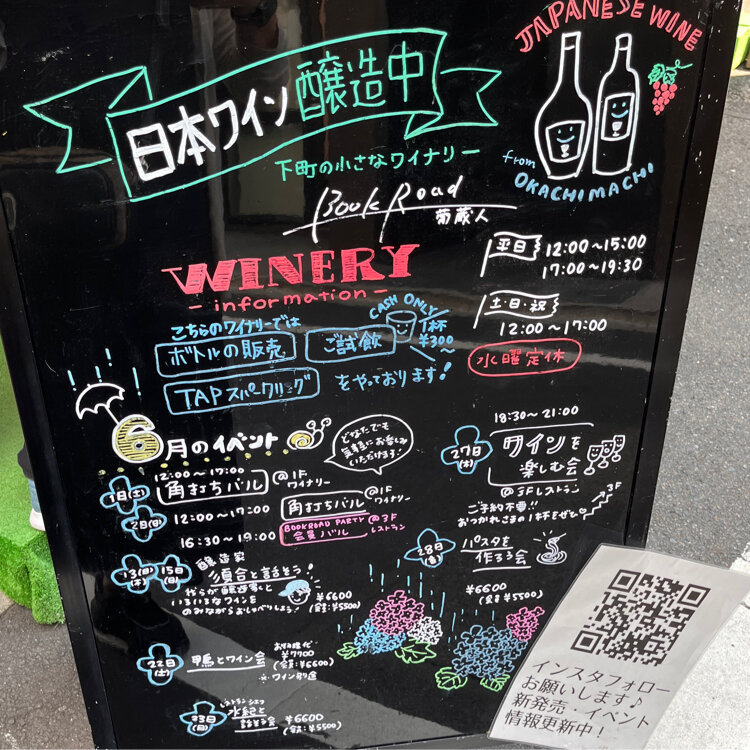 JAPANESE WINE
from
OKACHIMACHI
日本ワイン醸造中
下町の小さなワイナリー
Book Road
葡蔵人
WINERY
- information -
平日 12:00~15:00
17:00~19:30
土・日・祝
12:00~17:00
水曜定休
こちらのワイナリーでは
ボトルの販売 ご試飲
CASH ONLY
1杯
¥300~
TAPスパークリング をやっております!
6月のイベント
どなたでも
気軽にお楽しみ
いただけます!
12:00~17:00
1日(土) 角打ちバル @1F
ワイナリー
2日(日) 12:00~17:00 角打ちバル @1F
ワイナリー
16:30~19:00 BOOKROAD PARTY
会員バル @3F
レストラン
13(木) 15(日)
醸造家
須合と話そう!
¥6600
(会員:¥5500)
22日(土) 甲馬とワイン会
¥7700
(会員:¥6600)
※ワイン別途
23日(日) レストランシェフ
水紀と
話そう会 ¥6600
(会員:¥5500)
18:30~21:00
27日(木) ワインを
楽しむ会
@3Fレストラン
3F
ご予約不要!!
おつかれさまの1杯をぜひ
28日(金) パスタを
作ろう会
¥6600
(会員¥5500)
インスタフォロー
お願いします♪
新発売・イベント
情報更新中!